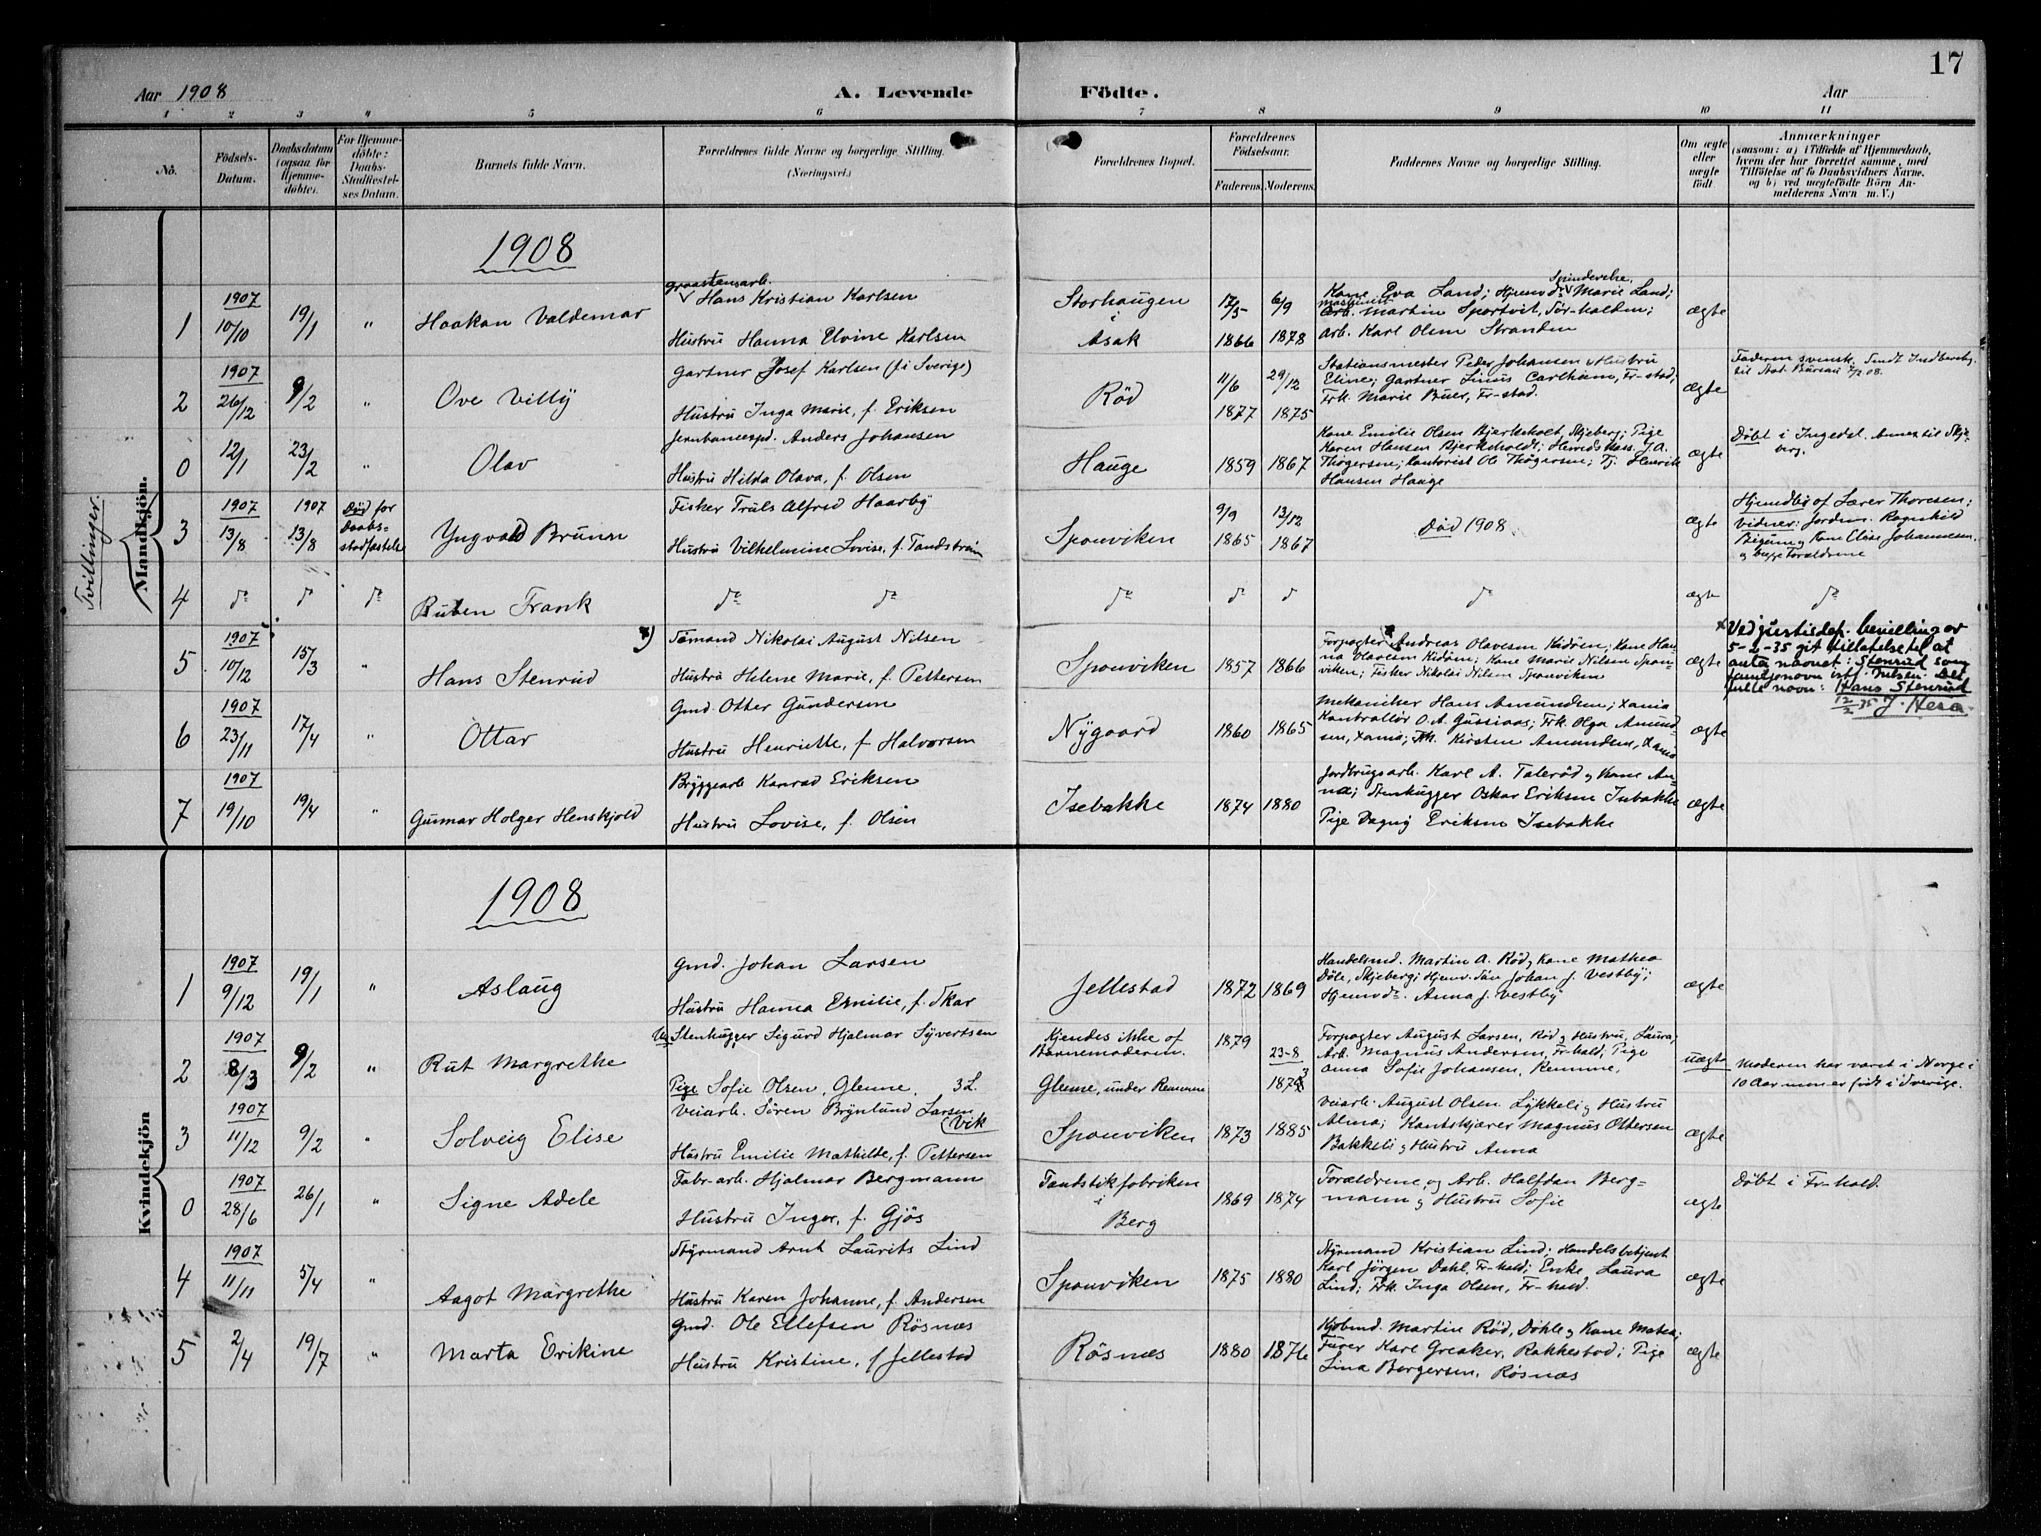 17
Aar 1908 A. Levende Födte. Aar
1 2 3 4 5 6 7 8 9 10 11
No.
Födsels-Datum.
Daabsdatum (ogsaa for Hjemmedöbte).
For Hjemmedöbte: Daabs-Stadfæstelses Datum.
Barnets fulde Navn.
Forældrenes fulde Navne og borgerlige Stilling. (Næringsvei.)
Forældrenes Bopæl.
Forældrenes Födselsaar.
Faderens. Moderens.
Faddernes Navne og borgerlige Stilling.
Om ægte eller uægte födt.
Anmærkninger
(saasom: a) i Tilfælde af Hjemmedaab, hvem der har forrettet samme, med Tilföielse af to Daabsvidners Navne, og b) ved uægtefödte Börn Anmelderens Navn m. V.)
Mandkjön.
Tvillinger.
1908
1 1907 10/10 19/1 " Haakon Valdemar
graastensarb. Hans Kristian Karlsen
Hustru Hanna Elvine Karlsen
Storhaugen i Asak
17/5 1866 6/9 1878
Kone Eva Land; Hjemvd. Spinderske Marie Land;
maskinin arb. Martin Sportvit, Tör-holden;
Arb. Karl Olsen Stranden
ægte
2 1907 26/12 9/2 " Ove Villy
Gartner Josef Karlsen (fi Sverige)
Hustru Inga Marie, f. Eriksen
Röd
11/6 1877 29/12 1875
Stationsmester Peder Johansen & Hustru
Eline; Gartner Linus Carlham, Fr-stad;
Frk. Marie Buer, Fr-stad.
ægte
Faderen svensk. Sendt Indberetg.
til Stat. Bureau 7/2 08.
0 12/1 23/2 " Olav
Jernbaneexpd. Anders Johansen
Hustru Hilda Olava, f. Olsen
Hauge
1859 1867
Kone Emilie Olsen Bjerkeholt, Skjeberg; Pige
Karen Hansen Bjerkeholdt; Herredskass. J. A.
Thögersen; Kontorist Ole Thögersen; Tj. Henrik
Hansen Hauge
ægte
Döbt i Ingedal. Annex til Skjeberg.
3 1907 13/8 1907 13/8 Död for Daabsstadfæstele Yngvald Brunn
Fisker Truls Alfred Haarby
Hustru Vilhelmine Lovise, f. Tandstrøm
Sponviken
9/9 1865 13/12 1867
Död 1908
ægte
Hjemdbt af Lærer Thoresen;
vidner: Jordm. Ragnhild
Bigum & Kone Elise Johannesen.
& begge Forældrene
4 do do do Ruben Frank
do do
do
do do
do
ægte
do
5 1907 10/12 15/3 " Hans Stenrud x)
Tömand Nikolai August Nilsen
Hustru Helene Marie, f. Pettersen
Sponviken
1857 1866
Forpagter Andreas Olavesen Kidöen; Kone Hanna
Olavesen Kidöen; Kone Marie Nilsen Sponviken;
Fisker Nikolai Nilsen Sponviken
ægte
x Ved justisdep. bevilling av
5-2-35 git tillatelse til at
anta navnet: Stenrud som
familjenavn istf. Nilsen. Det
fulle navn: Hans Stenrud
12/2 35 J. Hesa.
6 1907 23/11 17/4 " Ottar
Gmd. Otter Gundersen
Hustru Henriette, f. Halvorsen
Nygaard
1860 1865
Mekaniker Hans Amundsen, Xania
Kontrollör O. A. Gusiaas; Frk. Olga Amundsen,
Xania; Frk. Kirsten Amundsen, Xania
ægte
7 1907 19/10 19/4 " Gunnar Holger Henskjold
Bryggearb. Konrad Eriksen
Hustru Lovise, f. Olsen
Isebakke
1874 1880
Jordbrugsarb. Karl A. Taleröd & Kone Anna;
Stenhugger Oskar Eriksen Isebakke
Pige Dagny Eriksen Isebakke
ægte
Kvindekjön
1908
1 1907 9/12 19/1 " Aslaug
Gmd. Johan Larsen
Hustru Hanna Emilie, f. Skar
Jellestad
1872 1869
Handelsmd. Martin A. Röd & Kone Mathea
Döle, Skjeberg; Hjemv. Sön Johan J. Vestby;
Hjemvd. Anna J. Vestby
ægte
2 1907 8/3 9/2 " Rut Margrethe
Ug. Stenhugger Sigurd Hjalmar Syvertsen
Pige Sofie Olsen, Glenne. 3 L.
Kjendes ikke af Barnemoderen.
Glenne, under Remmen
1879 23-8 1873
Forpagter August Larsen, Röd & Hustru, Laura;
Arb. Magnus Andersen, Fr-hald, Pige
Anna Sofie Johansen, Remme,
uægte
Moderen har været i Norge i
10 Aar men er födt i Sverige.
3 1907 11/12 9/2 " Solveig Elise
Veiarb. Sören Brynlund Larsen (Vik
Hustru Emilie Mathilde, f. Pettersen
Sponviken
1873 1885
Veiarb. August Olsen Lykkeli & Hustru
Alma; Kantskjærer Magnus Ottersen
Bakkeli & Hustru Anna
ægte
0 1907 28/6 26/1 " Signe Adele
Fabr-arb. Hjalmar Bergmann
Hustru Inger, f. Gjös
Tandstikfabriken i Berg
1869 1874
Forældrene, og Arb. Halfdan Bergmann
& Hustru Sofie
ægte
Döbt i Fr-hald.
4 1907 11/11 5/4 " Aagot Margrethe
Styrmand Arnt Laurits Lind
Hustru Karen Johanne, f. Andersen
Sponviken
1875 1880
Styrmand Kristian Lind; Handelsbetjent
Karl Jörgen Dahl, Fr-hald; Enke Laura
Lind; Frk. Inga Olsen, Fr-hald.
ægte
5 2/4 19/7 " Marta Erikine
Gmd. Ole Ellefsen Rösnæs
Hustru Kristine, f. Jellestad
Rösnæs
1880 1876
Kjöbmd. Martin Röd, Döhle & Kone Matea;
Furer Karl Greaker, Rakkestad; Pige
Lina Borgersen, Rösnæs
ægte